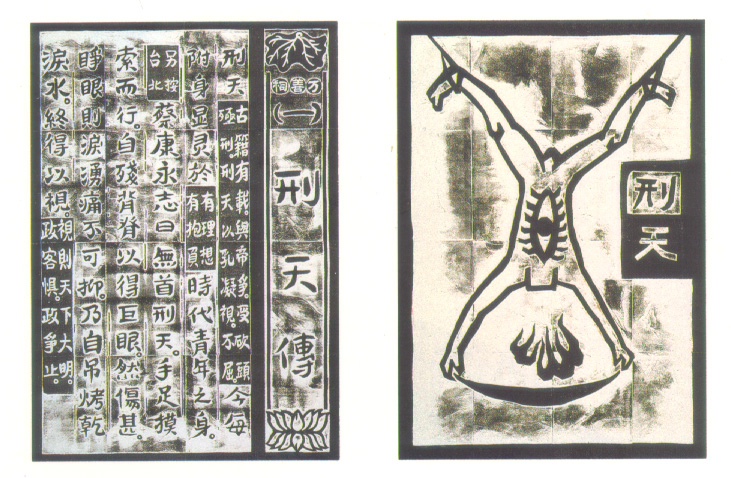 万善祠
(一)
刑天傳
刑天古籍有載。與帝爭。受砍頭極刑。刑天以乳凝視。不屈今每
附身显見於有理想有抱負時代青年之身。
另按台北蔡康永志曰無首刑天。手足摸
索而行。自殘背脊以得巨眼。然傷甚。
睜眼則淚湧痛不可抑。乃自吊烤乾
淚水。終得以視。視則天下大明。政客惧。政爭止。
刑天